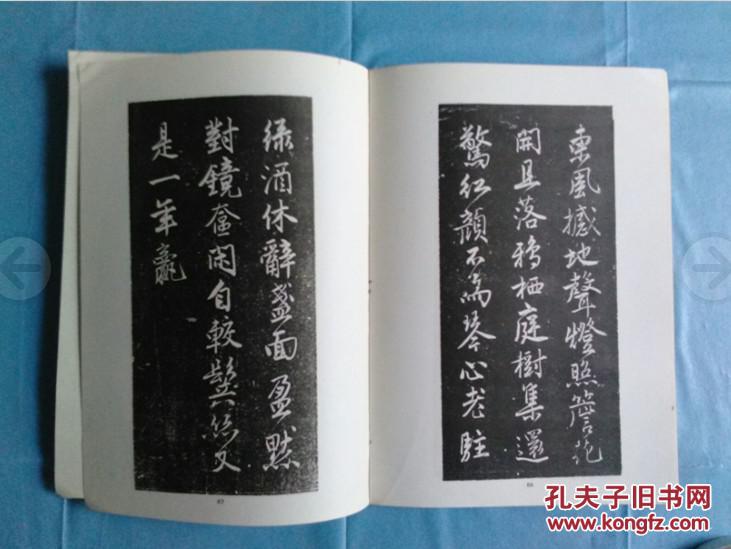 東風撼地聲燈照簷花
開且落鴉栖庭樹集還
驚紅顏不為琴心老駐
綠酒休辭盞面盈默
對鏡奩閑自較鬢絲又
是一年贏
孔夫子旧书网
www.kongfz.com